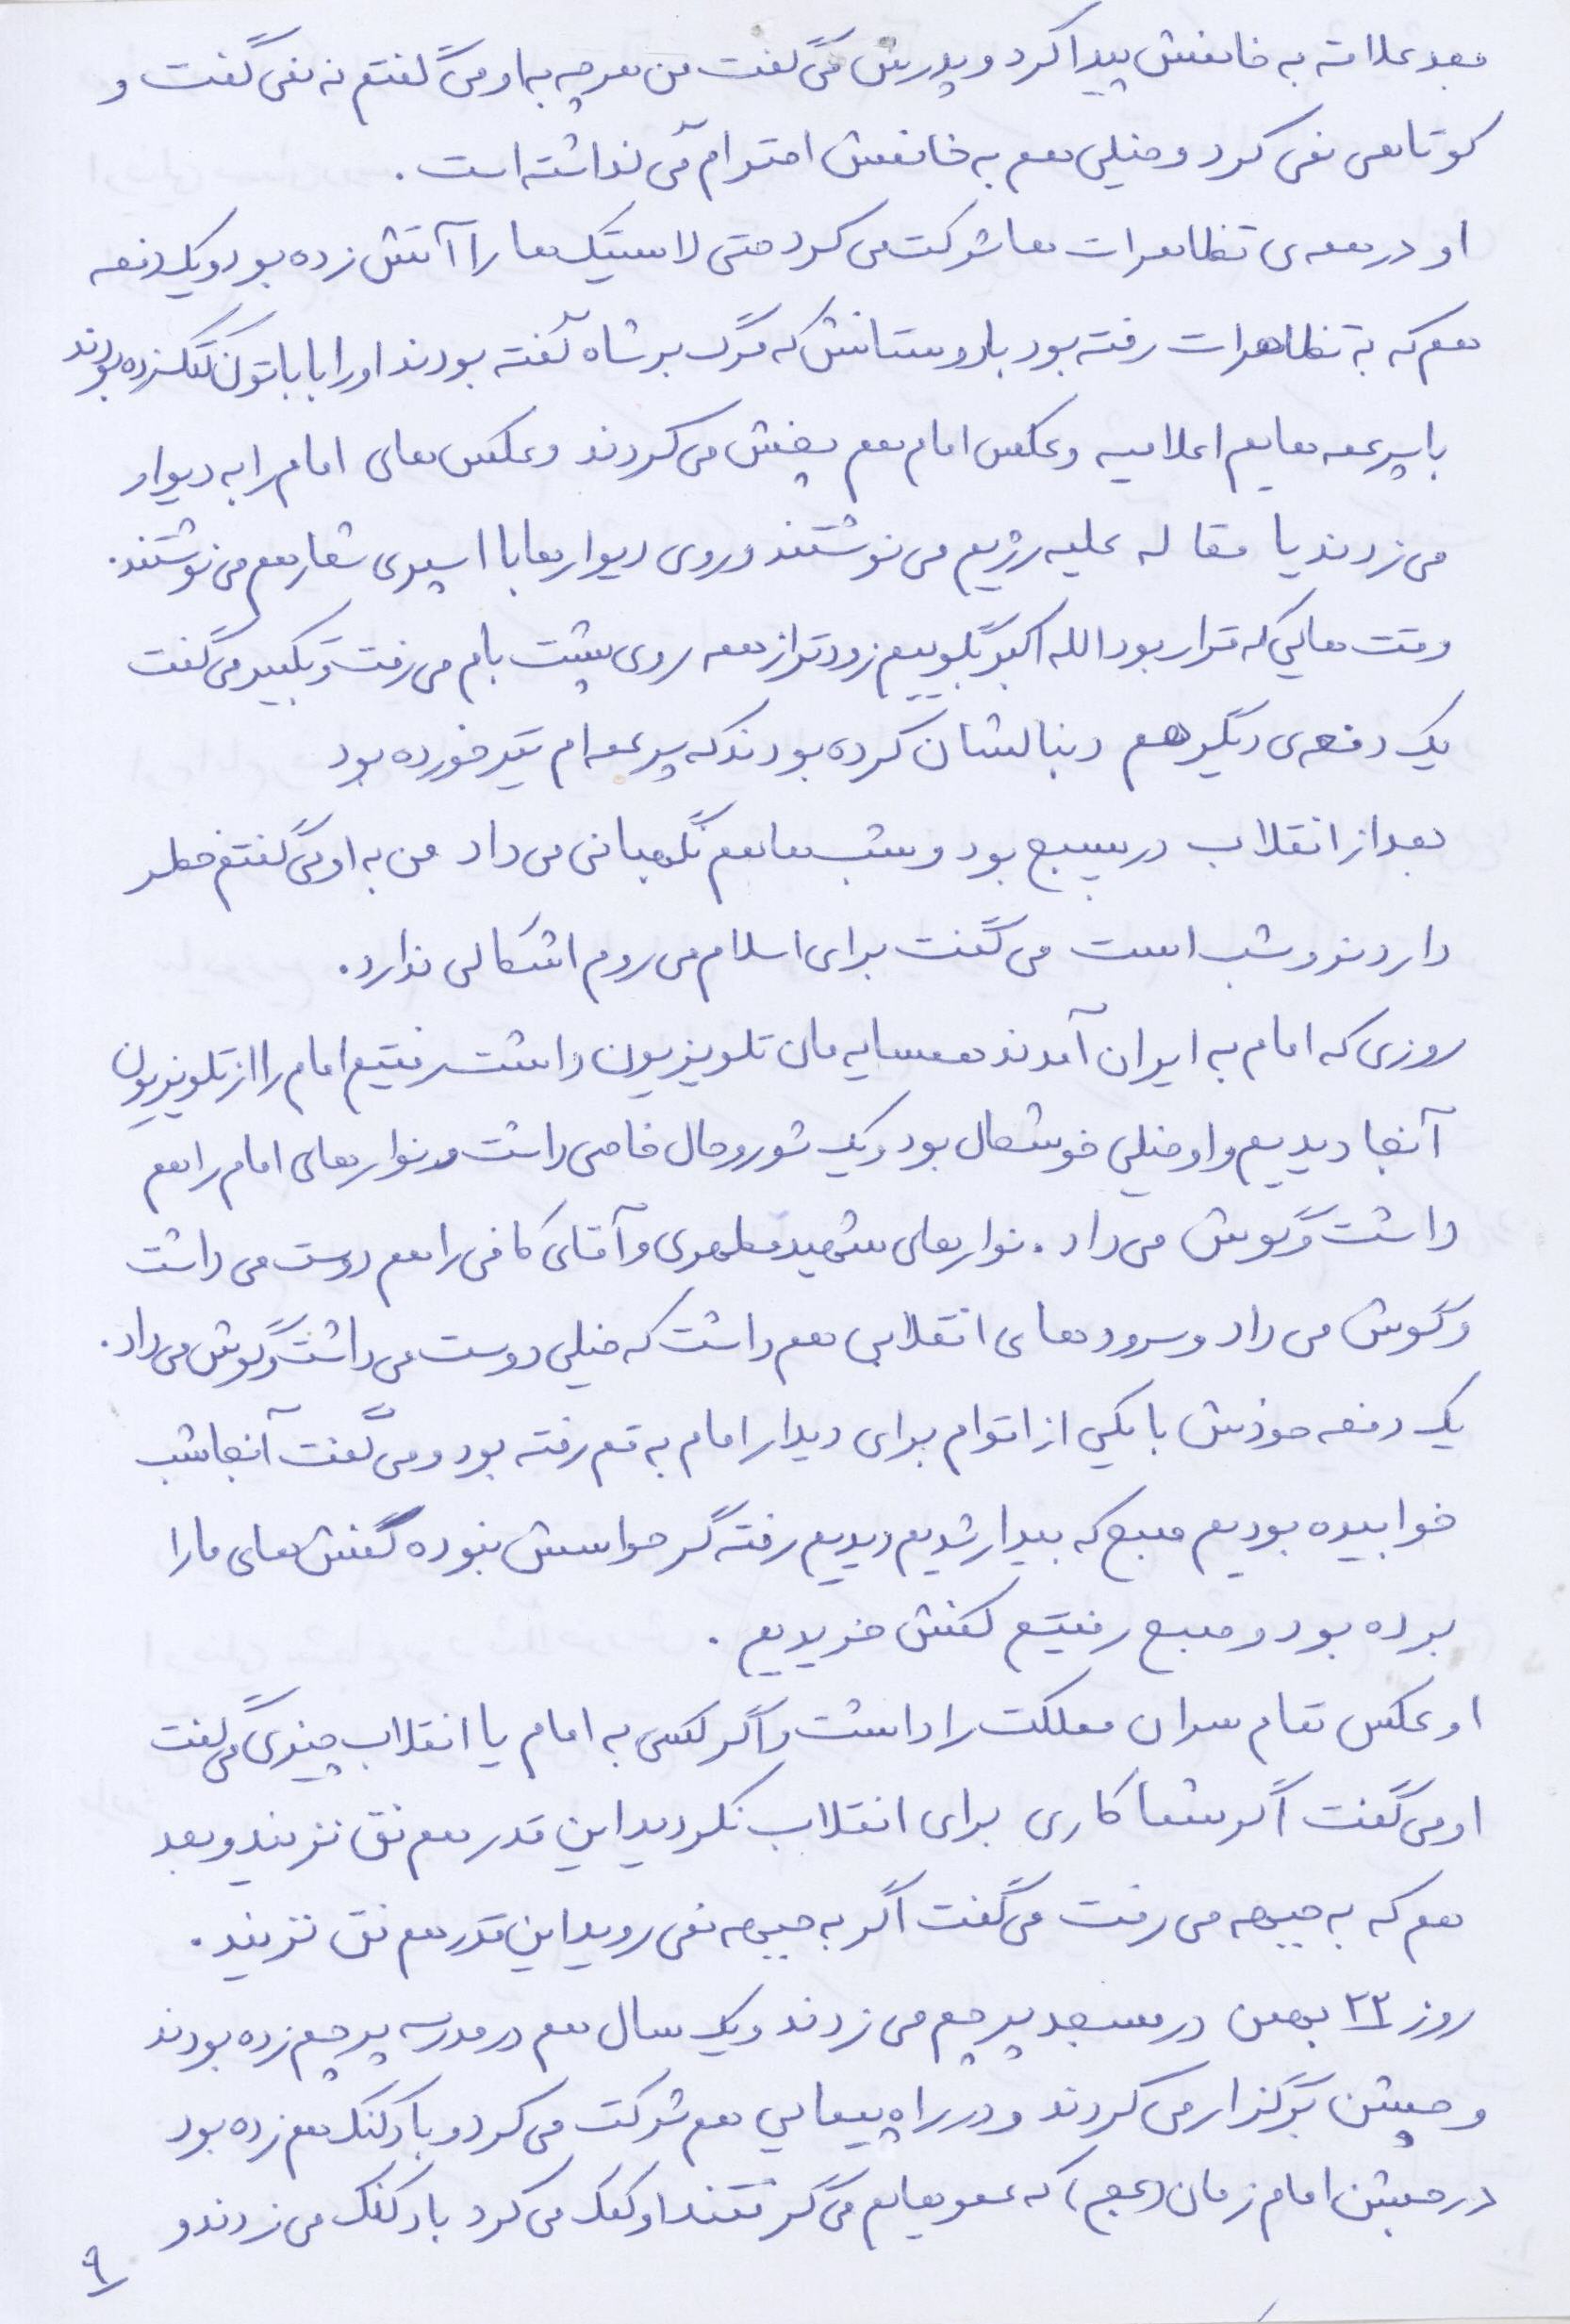 بعد علاقه به خانمش پیدا کرد و پدرش می گفت من هرچه به او می گفتم نه نمی گفت و
کوتاهی نمی کرد و خیلی هم به خانمش احترام می نداشته است .
او در همه ی تظاهرات ها شرکت می کرد حتی لاستیک ها را آتش زده بود و یک دفعه
هم که به تظاهرات رفته بود با دوستانش که مرگ بر شاه گفته بودند او را با باتون کتک زده بودند
با پسرعمه هایم اعلامیه و عکس امام هم پخش می کردند و عکس های امام را به دیوار
می زدند یا مقاله علیه رژیم می نوشتند و روی دیوارها با اسپری شعار هم می نوشتند .
وقت هایی که قرار بود الله اکبر بگوییم زودتر از همه روی پشت بام می رفت و تکبیر می گفت
یک دفعه ی دیگر هم دنبالشان کرده بودند که پسرعمه ام تیر خورده بود
بعد از انقلاب در بسیج بود و شب ها هم نگهبانی می داد من به او می گفتم خطر
دارد نرو شب است می گفت برای اسلام می روم اشکالی ندارد .
روزی که امام به ایران آمدند همسایه مان تلویزیون داشت رفتیم امام را از تلویزیون
آنجا دیدیم و او خیلی خوشحال بود و یک شور و حال خاصی داشت و نوارهای امام را هم
داشت و گوش می داد . نوارهای شهید مطهری و آقای کافی را هم دوست می داشت
و گوش می داد و سرودهای انقلابی هم داشت که خیلی دوست می داشت و گوش می داد .
یک دفعه خودش با یکی از اقوام برای دیدار امام به قم رفته بود و می گفت آنجا شب
خوابیده بودیم صبح که بیدار شدیم دیدیم رفته گر حواسش نبوده کفش های ما را
برده بود و صبح رفتیم کفش خریدیم .
او عکس تمام سران مملکت را داشت و اگر کسی به امام یا انقلاب چیزی می گفت
او می گفت اگر شما کاری برای انقلاب نکردید این قدر هم نق نزنید و بعد
هم که به جبهه می رفت می گفت اگر به جبهه نمی روید این قدر هم نق نزنید .
روز ۲۲ بهمن در مسجد پرچم می زدند و یک سال هم در مدرسه پرچم زده بودند
و جشن برگزار می کردند و در راه پیمایی هم شرکت می کرد و بادکنک هم زده بود
در جشن امام زمان (عج) که عموهایم می گرفتند او کمک می کرد بادکنک می زدند و
۹